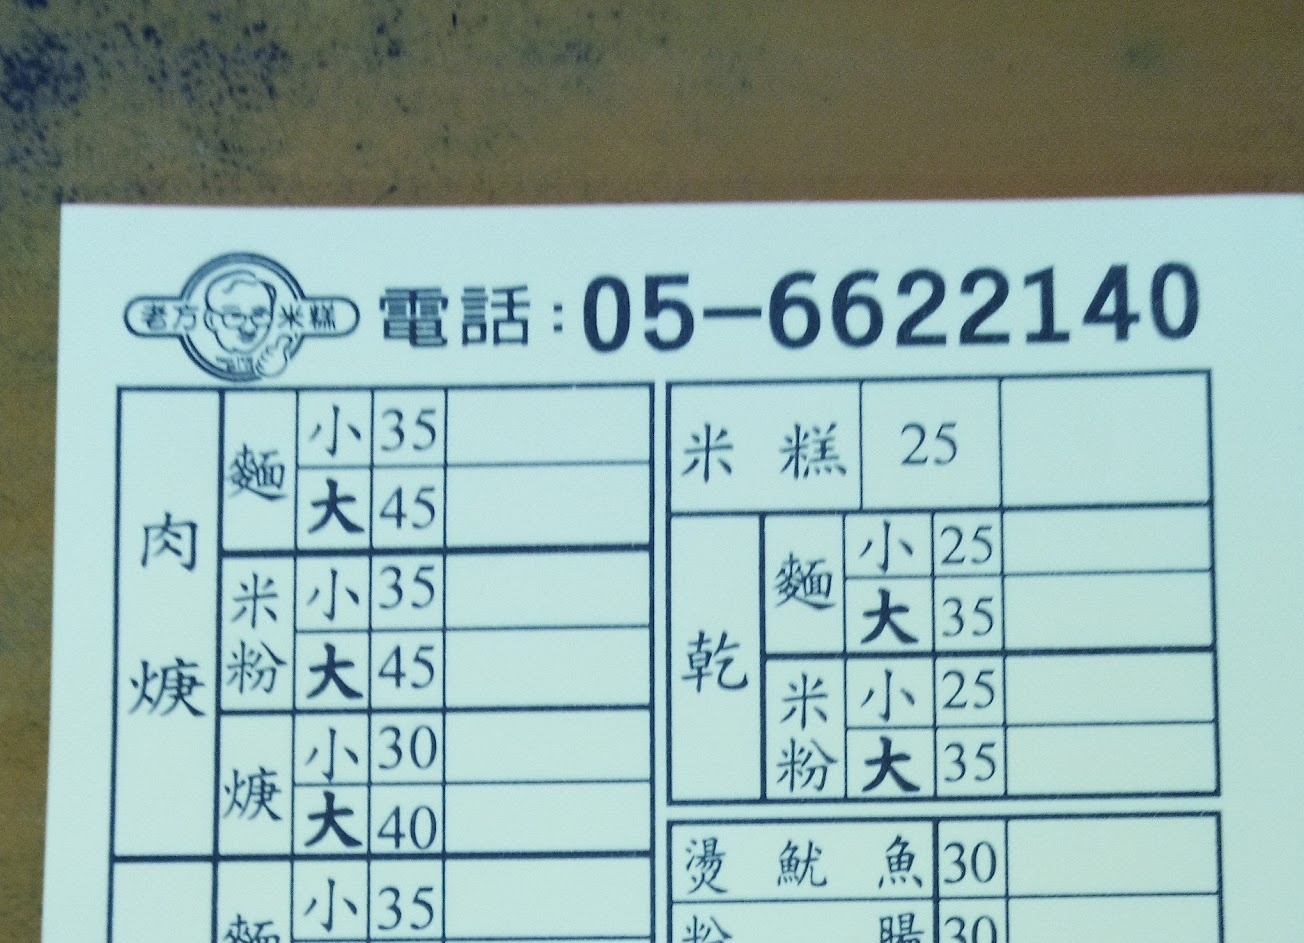 老方米糕
電話:05-6622140
肉焿
麵 小 35
大 45
米粉 小 35
大 45
焿 小 30
大 40
麵 小 35
米糕 25
乾
麵 小 25
大 35
米粉 小 25
大 35
燙魷魚 30
粉腸 30